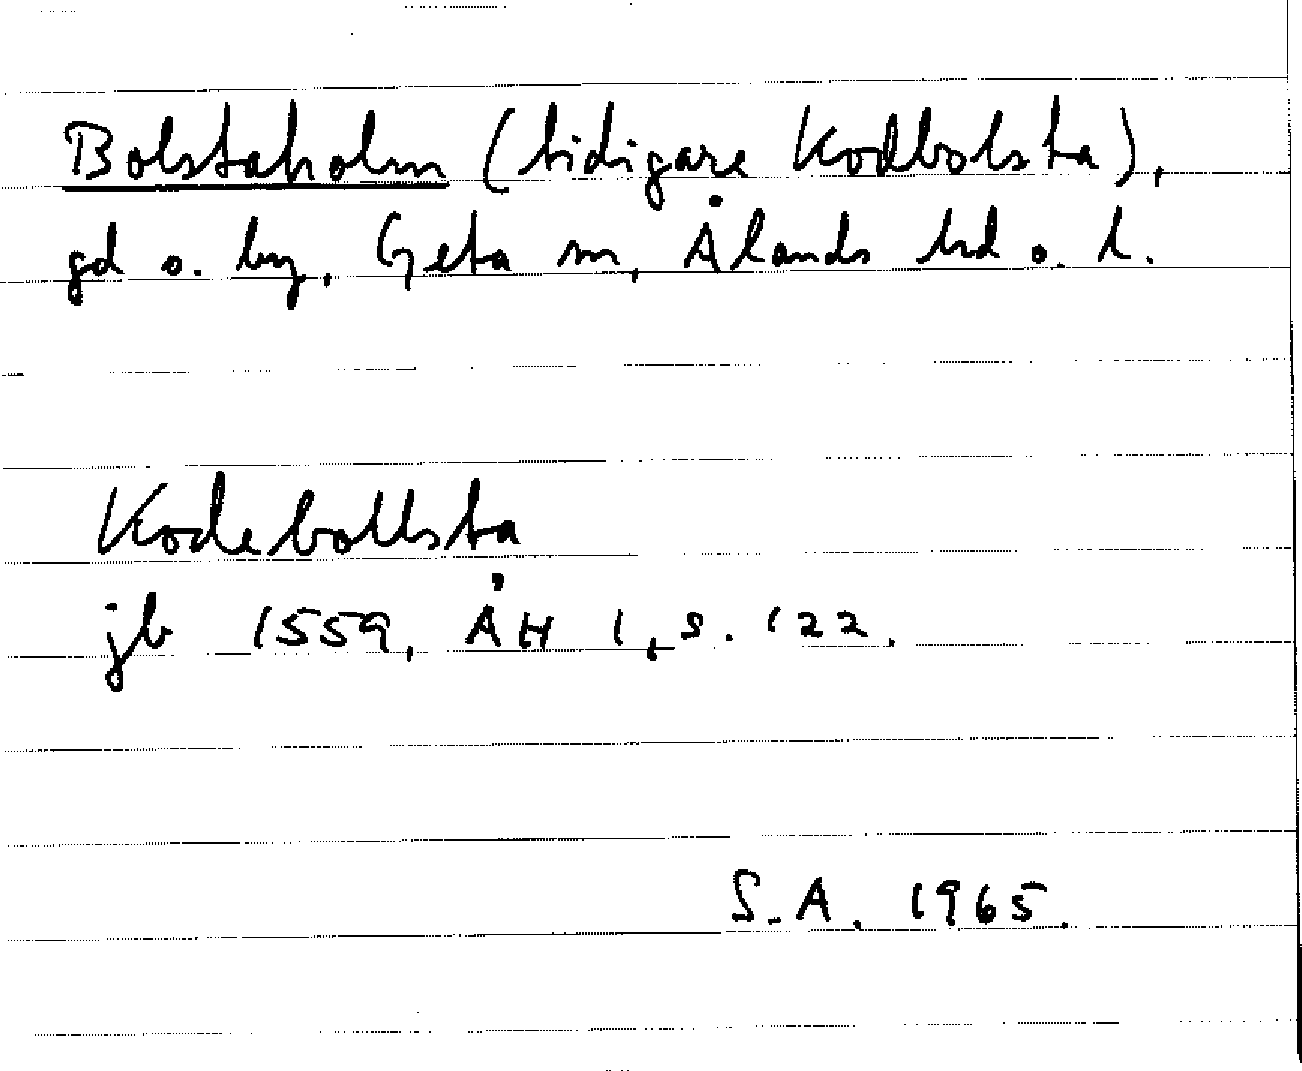 Bolstaholm (tidigare Kodbolsta),
gd o. by, Geta sn, Ålands hd o. l.
Kodebollsta
jb 1559, ÅH 1, s. 122.
S.A. 1965.